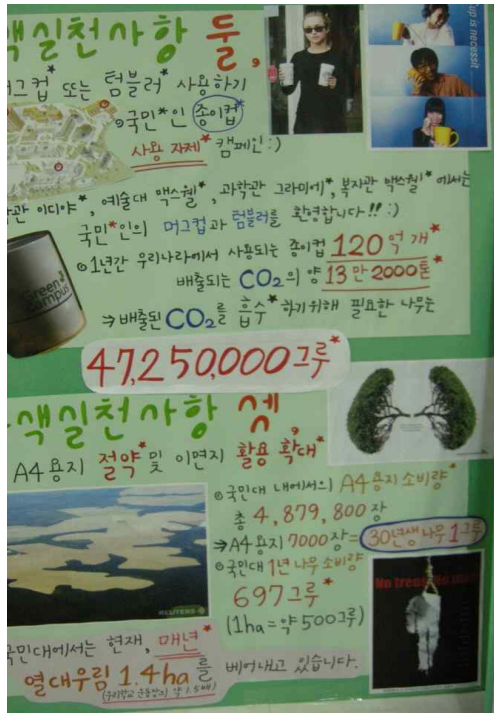 색실천사항 둘,
up is necessit
머그컵* 또는 텀블러* 사용하기
◎국민*인 종이컵*
사용 자제* 캠페인:)
관 이디야*, 예술대 맥스웰*, 과학관 그라미에*, 복지관 맥스웰* 에서는
국민*인의 머그컵과 텀블러를 환영합니다!! :)
◎1년간 우리나라에서 사용되는 종이컵 120억 개*
배출되는 CO2의 양 13만 2000톤*
Green Campus
→ 배출된 CO2를 흡수* 하기위해 필요한 나무는
47,250,000그루*
색실천사항 셋,
A4용지 절약* 및 이면지 활용 확대*
◎국민대 내에서의 A4용지 소비량*
총 4,879,800장
→A4용지 7000장 = 30년생 나무 1그루
◎국민대 1년 나무 소비량
697그루*
(1ha = 약 500그루)
REUTERS
No trees No
국민대에서는 현재, 매년*
열대우림 1.4ha를 베어내고 있습니다.
(우리학교 운동장의 약 1.5배)